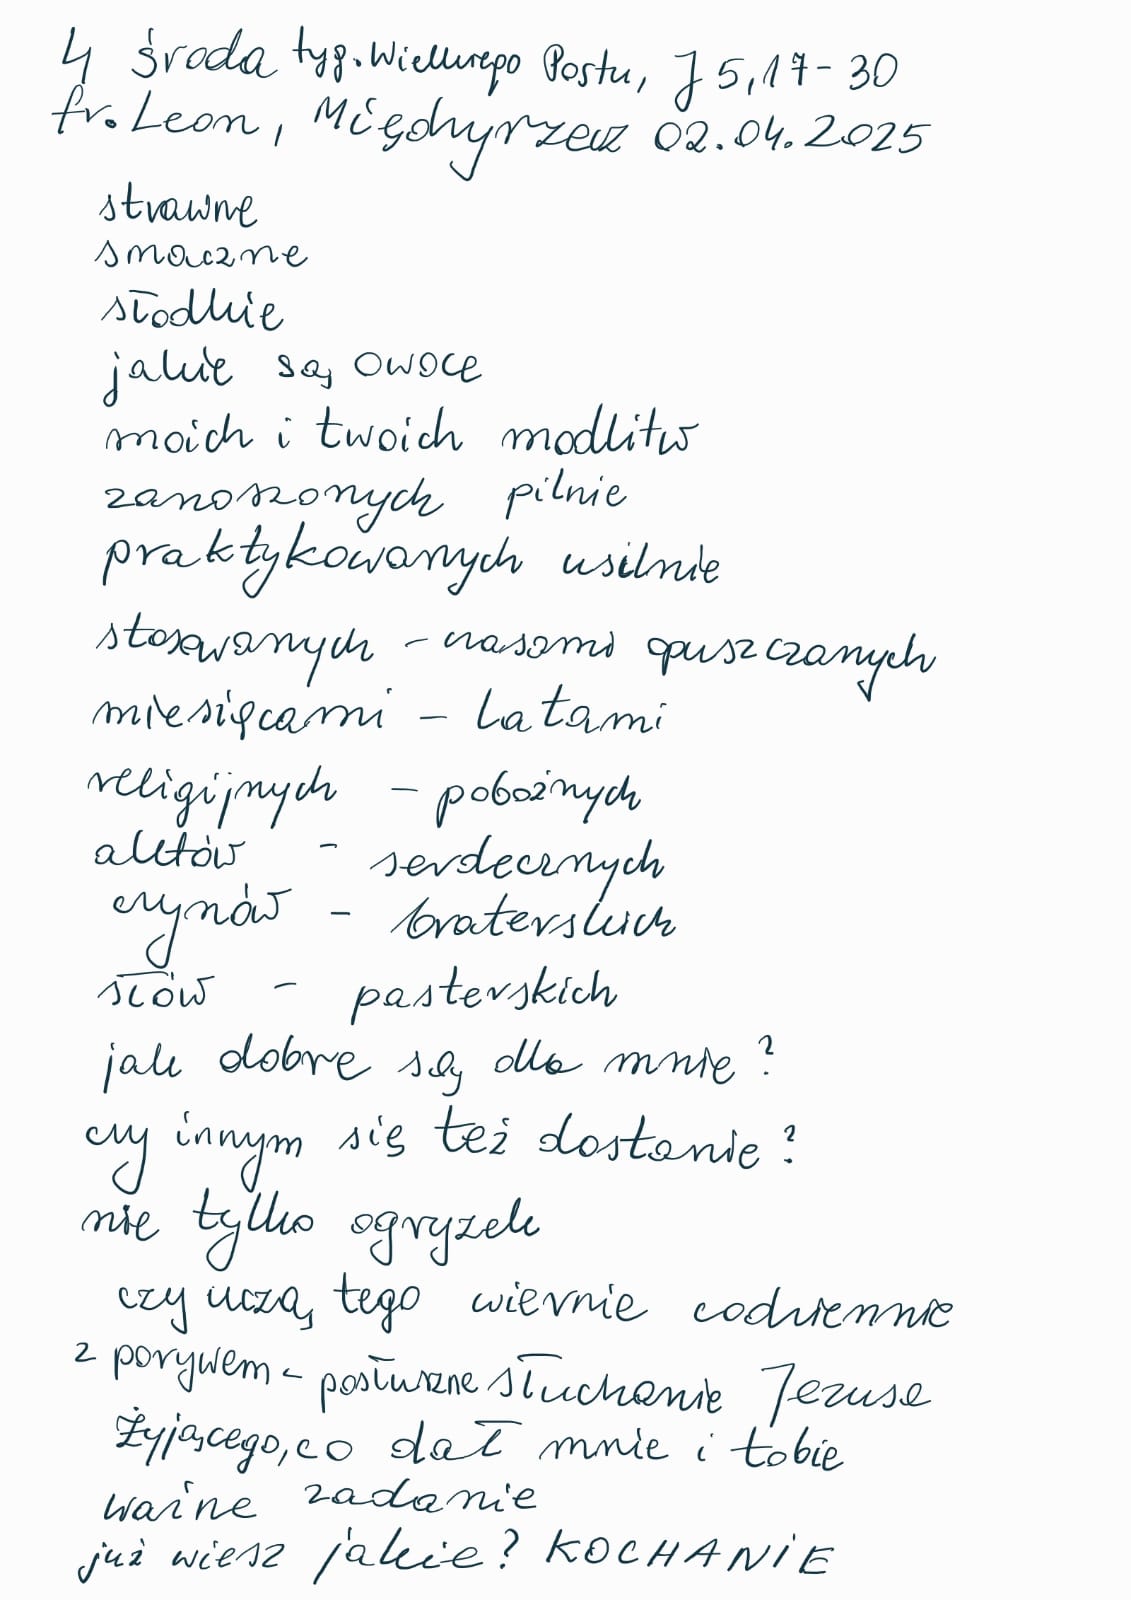 4 środa tyg. Wielkiego Postu, J 5,17-30
fr. Leon, Międzyrzecz 02.04.2025
strawne
smaczne
słodkie
jakie są owoce
moich i twoich modlitw
zanoszonych pilnie
praktykowanych usilnie
stosowanych - czasami opuszczanych
miesiącami - latami
religijnych - pobożnych
aktów - serdecznych
czynów - braterskich
słów - pasterskich
jak dobre są dla mnie?
czy innym się też dostanie?
nie tylko ogryzek
czy uczą tego wiernie codziennie
z porywem - posłuszne słuchanie Jezusa
Żyjącego, co dał mnie i tobie
ważne zadanie
już wiesz jakie? KOCHANIE